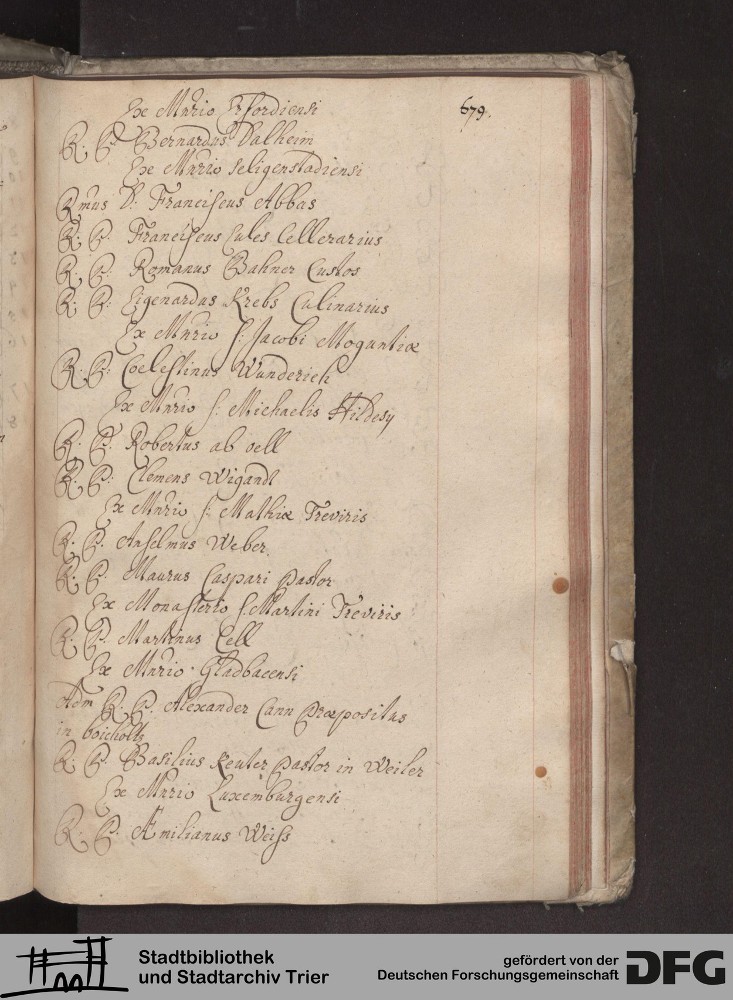 679.
Ex Mnrio Erfordiensi
R: P: Bernardus Valheim
Ex Mnrio Seligenstadiensi
Rmus D: Franciscus Abbas
R: P: Franciscus Jules Cellerarius
R: P: Romanus Bahner Custos
R: P: Eigenardus Krebs Culinarius
Ex Mnrio S: Jacobi Moguntiæ
R: P: Coelestinus Wunderich
Ex Mnrio S: Michaelis Hildesy
R: P: Robertus ab oell
R: P: Clemens Wigandt
Ex Mnrio S: Mathiæ Treviris
R: P: Anselmus Weber.
R: P: Maurus Caspari Pastor
Ex Monasterio S Martini Treviris
R: P: Martinus Cell
Ex Mnrio Gladbacensi
Adm R: P: Alexander Cann Præpositus
in boicholtz
R: P: Basilius Reuter Pastor in Weiler
Ex Mnrio Luxemburgensi
R: P: Æmilianus Weiss
Stadtbibliothek
und Stadtarchiv Trier
gefördert von der
Deutschen Forschungsgemeinschaft
DFG